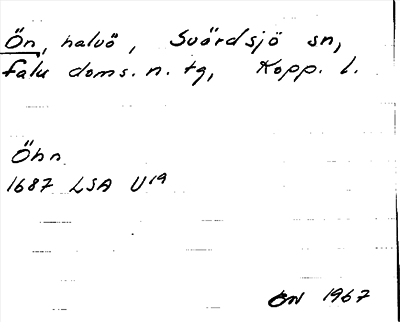 Ön, halvö, Svärdsjö sn,
Falu doms. n. tg, Kopp. l.
Öhn
1687 LSA U19
ÖN 1967